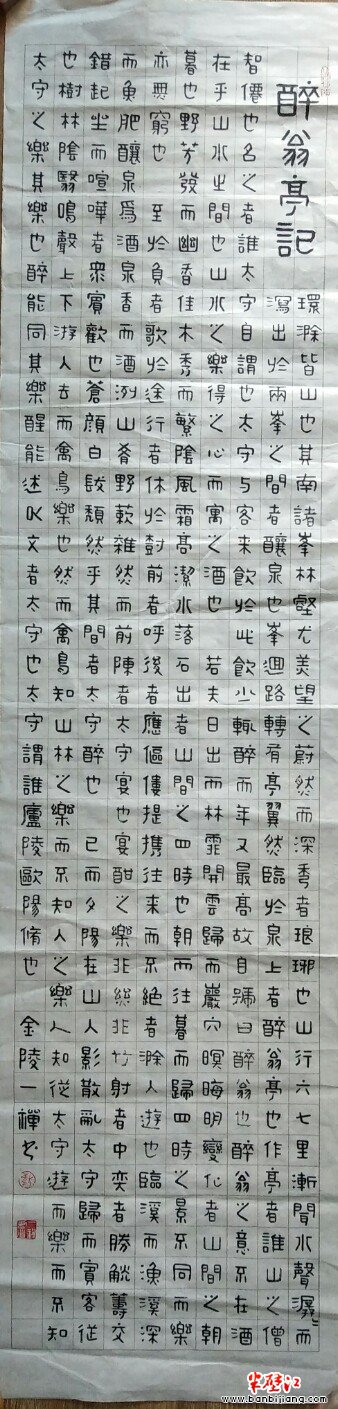 醉翁亭記
環滁皆山也其南諸峯林壑尤美望之蔚然而深秀者琅琊也山行六七里漸聞水聲潺〻而
瀉出於兩峯之間者釀泉也峯迴路轉有亭翼然臨於泉上者醉翁亭也作亭者誰山之僧
智僊也名之者誰太守自謂也太守与客來飲於此飲少輒醉而年又最高故自號曰醉翁也醉翁之意不在酒
在乎山水之間也山水之樂得之心而寓之酒也 若夫日出而林霏開雲歸而巖穴暝晦明變化者山間之朝
暮也野芳發而幽香佳木秀而繁陰風霜高潔水落石出者山間之四時也朝而往暮而歸四時之景不同而樂
亦無窮也 至於負者歌於途行者休於樹前者呼後者應傴僂提攜往來而不絕者滁人遊也臨溪而漁溪深
而魚肥釀泉爲酒泉香而酒洌山肴野蔌雜然而前陳者太守宴也宴酣之樂非絲非竹射者中奕者勝觥籌交
錯起坐而喧嘩者眾賓歡也蒼顏白髮頹然乎其間者太守醉也 已而夕陽在山人影散亂太守歸而賓客從
也樹林陰翳鳴聲上下游人去而禽鳥樂也然而禽鳥知山林之樂而不知人之樂人知從太守遊而樂而不知
太守之樂其樂也醉能同其樂醒能述以文者太守也太守謂誰廬陵歐陽脩也 金陵一禪书
半壁江
www.banbijiang.com